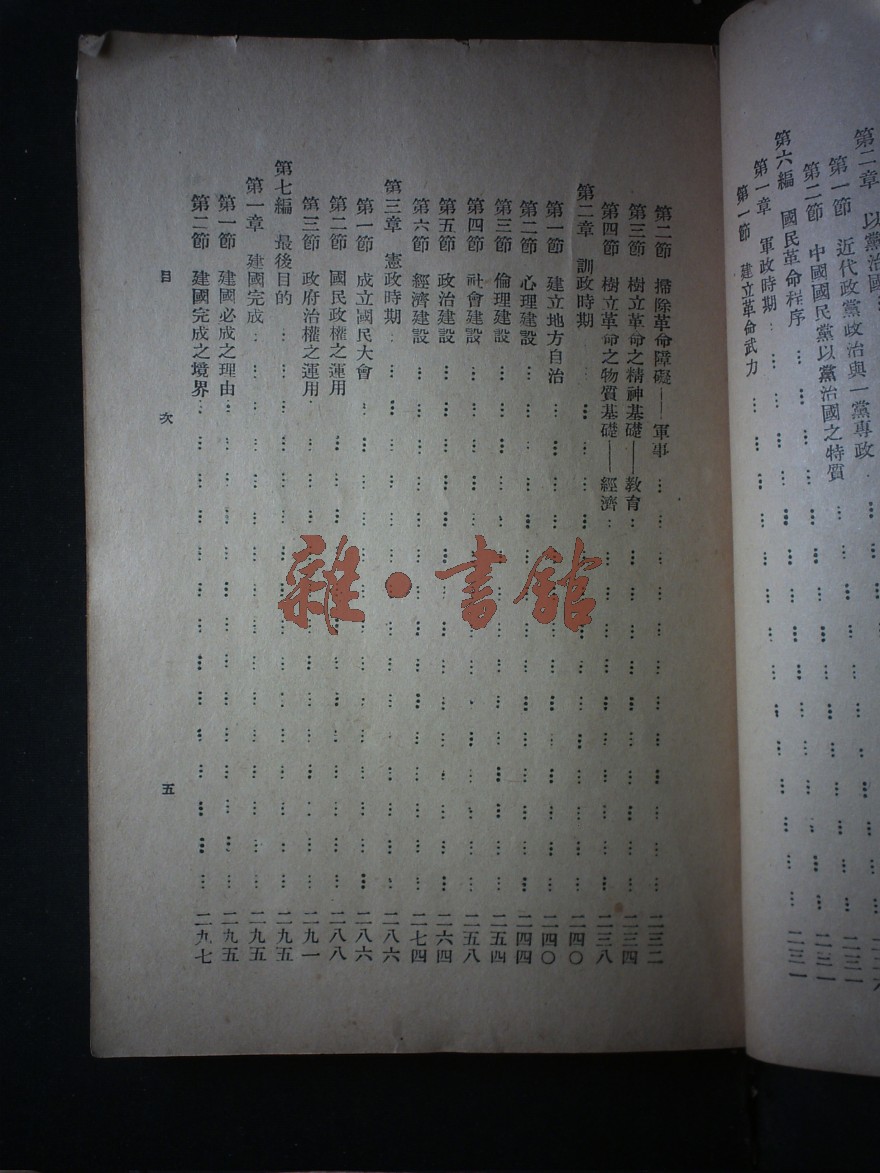 第二章　以黨治國
第一節　近代政黨政治與一黨專政
第二節　中國國民黨以黨治國之特質
第六編　國民革命程序
第一章　軍政時期
第一節　建立革命武力……二三一
第二節　掃除革命障礙——軍事……二三二
第三節　樹立革命之精神基礎——教育……二三四
第四節　樹立革命之物質基礎——經濟……二三八
第二章　訓政時期……二四〇
第一節　建立地方自治……二四〇
第二節　心理建設……二四四
第三節　倫理建設……二五四
第四節　社會建設……二五八
第五節　政治建設……二六四
第六節　經濟建設……二七四
第三章　憲政時期……二八六
第一節　成立國民大會……二八六
第二節　國民政權之運用……二八八
第三節　政府治權之運用……二九一
第七編　最後目的……二九五
第一章　建國完成……二九五
第一節　建國必成之理由……二九五
第二節　建國完成之境界……二九七
目次　五
雜·書館